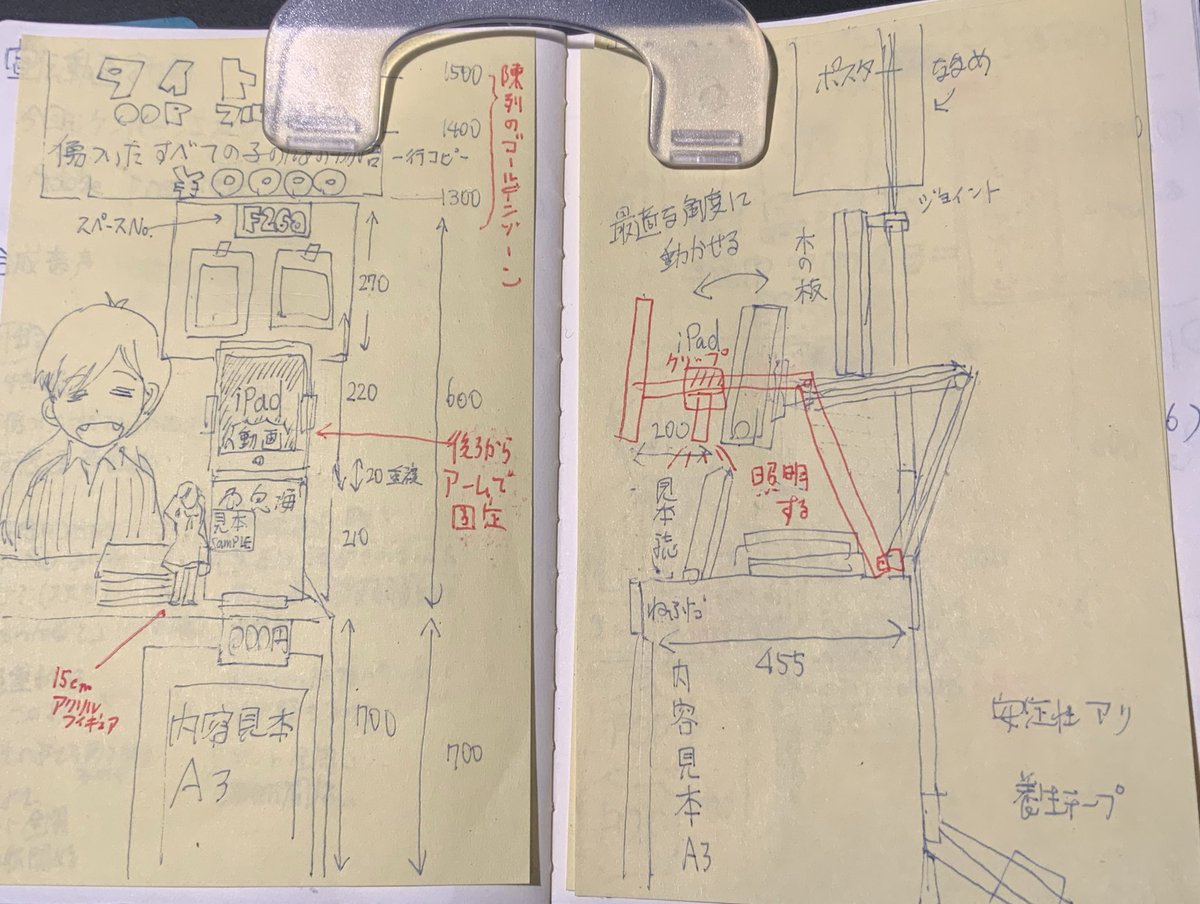 タイト
1500
1400
傷ついたすべての子
一行コピー
¥0000
1300
陳列のゴールデンゾーン
スペースNo.
F26a
270
iPad
動画
220
600
後ろから
アームで
固定
20重複
見本
SAMPLE
210
15cm
アクリル
フィギュア
000円
内容見本
A3
700
700
ポスター
ななめ
ジョイント
最適な角度に
動かせる
木の板
iPad
クリップ
200
照明
する
見本誌
ねふだ
455
内容見本
A3
安定性アリ
養生テープ